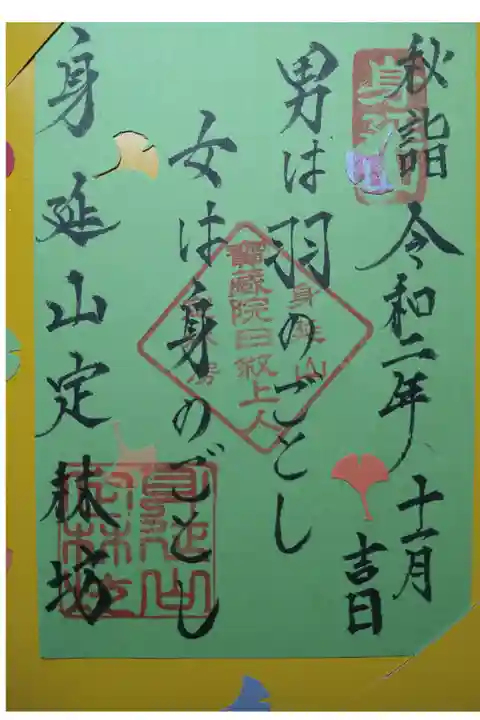 秋詣 令和二年十一月
吉日
男は羽のごとし
女は身のごとし
身延山定林坊
身延山
寶蔵院日叙上人